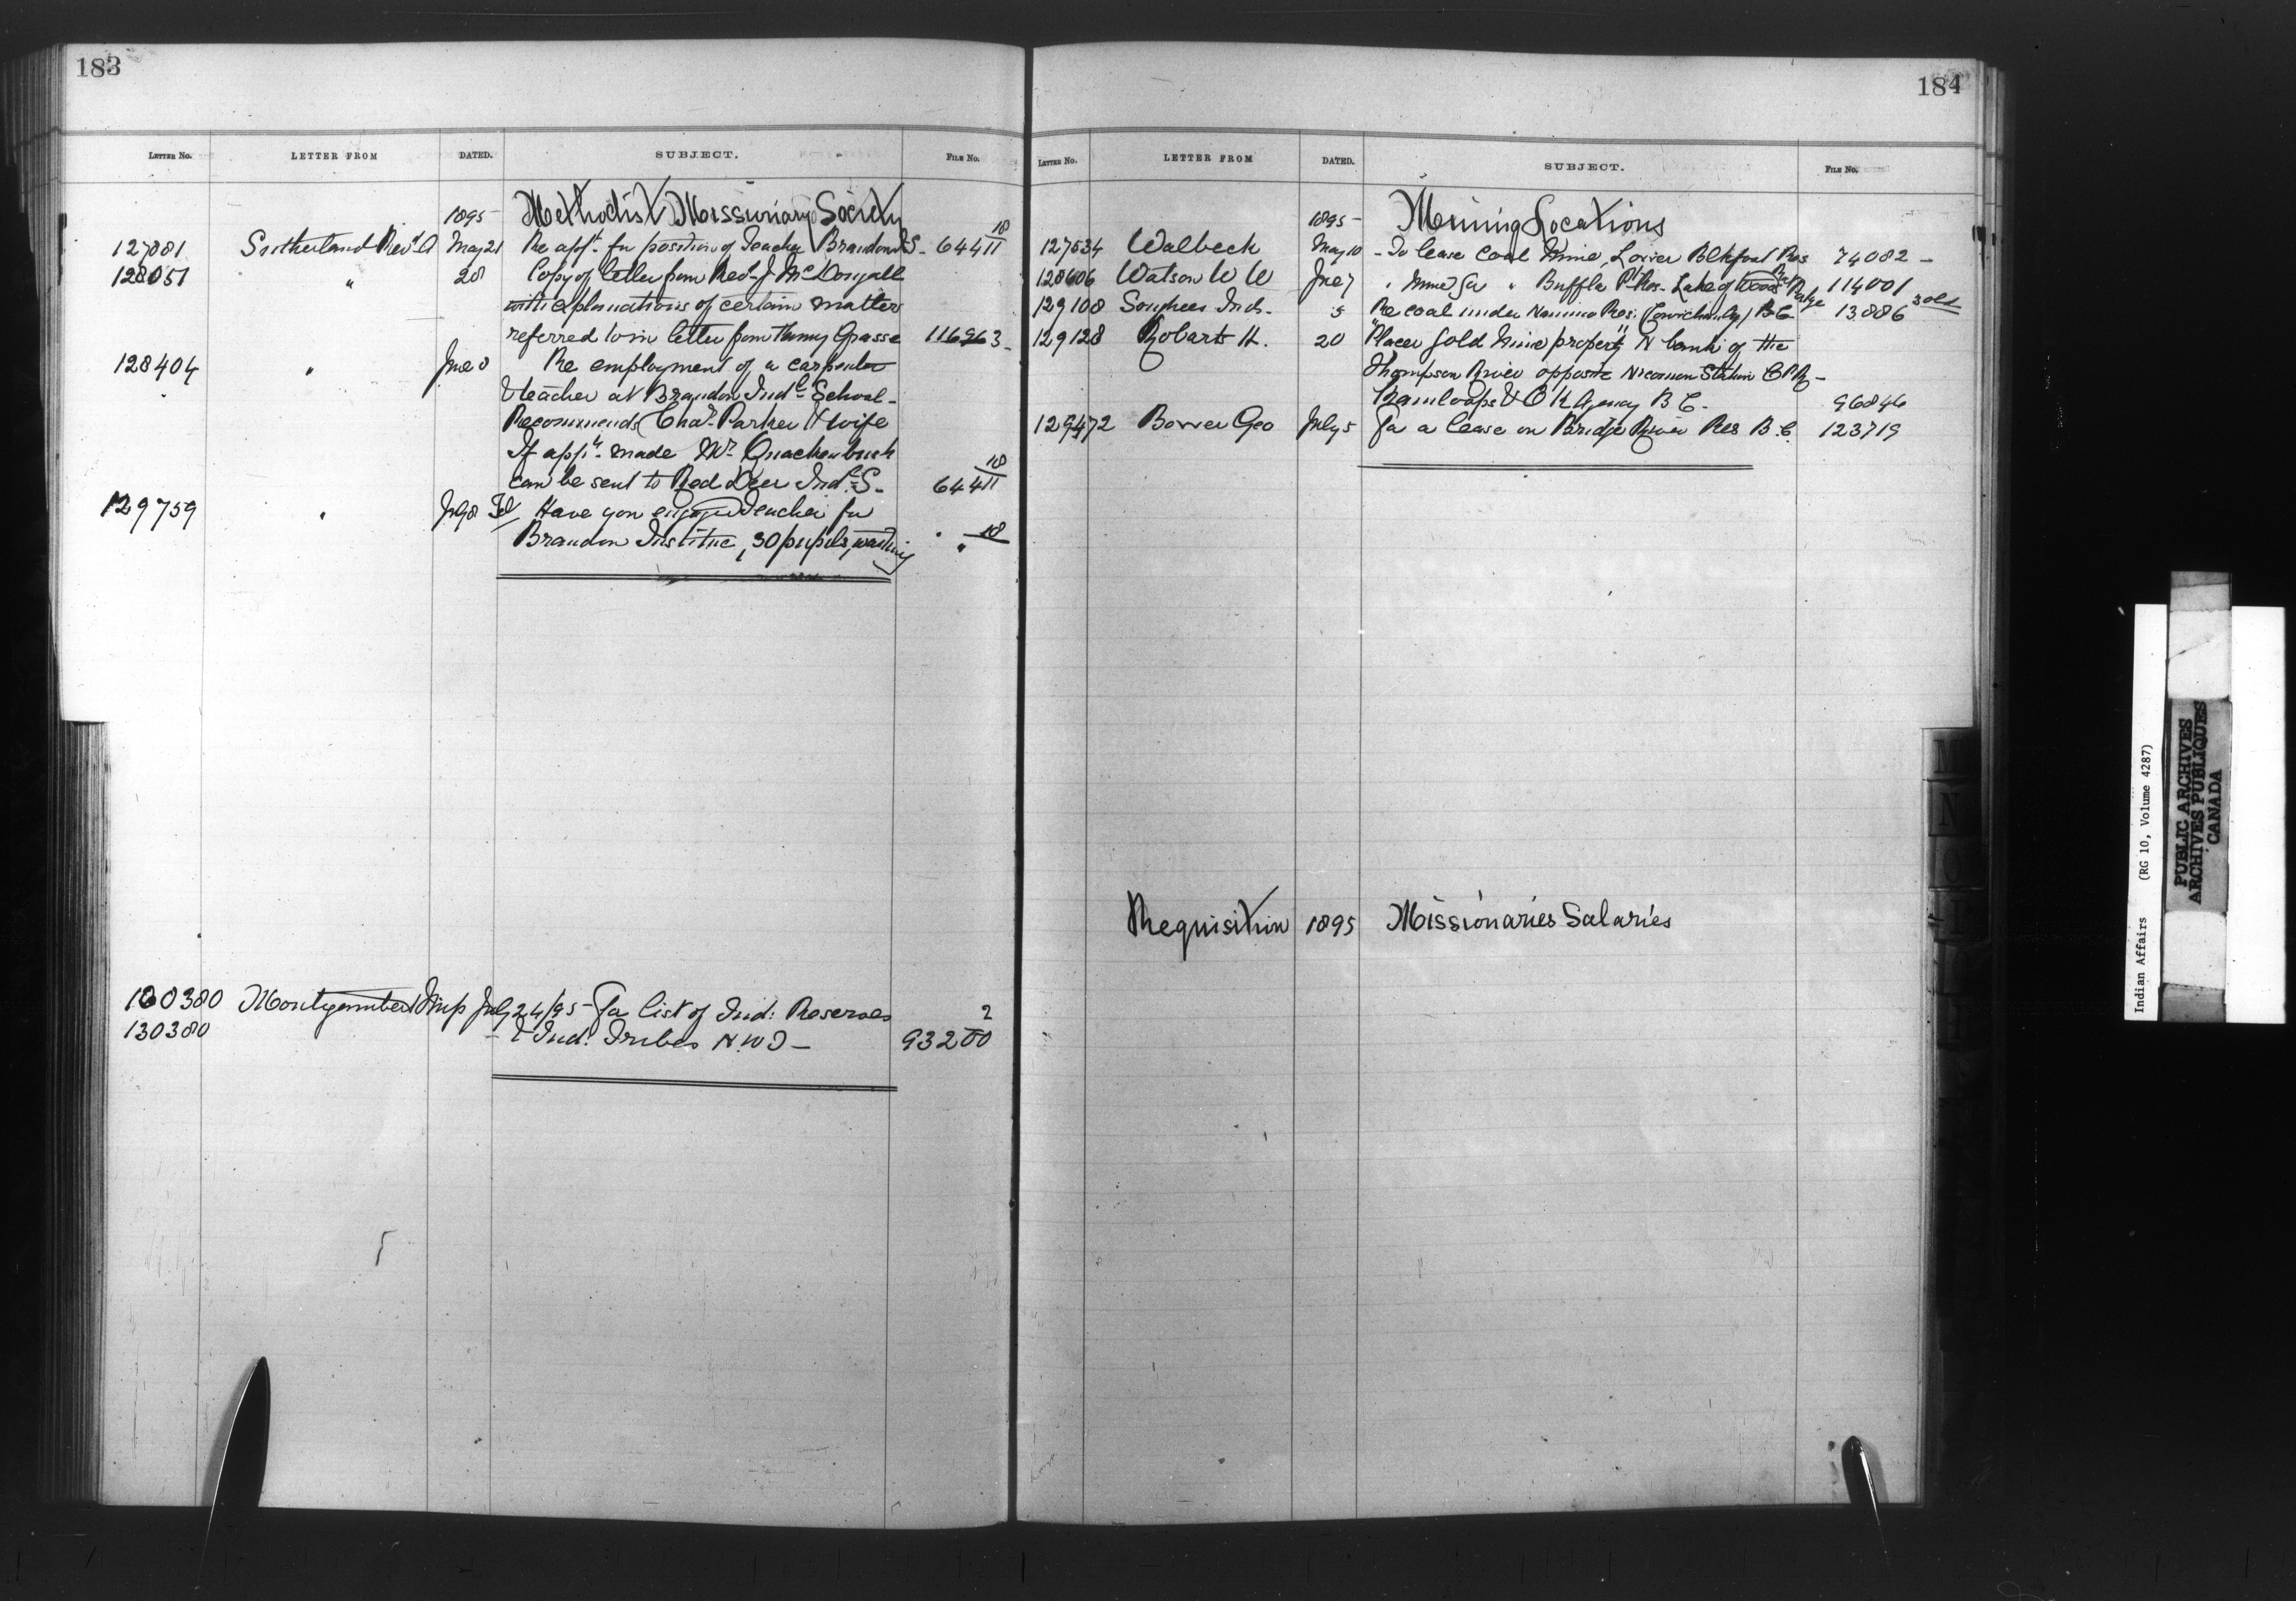 183
LETTER NO. LETTER FROM DATED. SUBJECT. FILE NO.
1895 Methodist Missionary Society
127881 Sutherland Revd A May 21 Re appt. for position of Teacher Brandon I S. 64411 18
128051 " 28 Copy of letter from Revd J McDougall
with explanations of certain matters
referred to in letter from Henry Grasse 116963
128404 " June 8 Re employment of a carpenter
& teacher at Brandon Indl. School -
Recommends Chas. Parker & wife
If appt. made Mr Quackenbush
can be sent to Red Deer Ind. S. 64411 18
129759 " July 8 Tel Have you engaged teacher for
Brandon Institue, 30 pupils, waiting " " 18
130380 July 24/95 - For list of Ind: Reserves
130380 - & Ind. Tribes N.W.T - 93200 2
184
LETTER NO. LETTER FROM DATED. SUBJECT. FILE NO.
1895 - Mining Locations
127534 Walbeck May 10 - To lease coal mine, Lower Blkfoot Res 74082 -
128606 Watson W W Jne 7 " mine for " Buffalo Pt Res. Lake of Woods 114001
129108 Songhees Inds. 5 Re coal under Nanimo Res. (Cowichan Agy) B C 13.886
129128 Robarts H. 20 "Placer gold mine property" N bank of the
Thompson River opposite Nicomen Station C P R -
Kamloops & O K Agency B C. 96846
129472 Bower Geo July 5 For a lease on Bridge River Res B.C. 123719
Requisition 1895 Missionaries Salaries
M
N
O
Indian Affairs (RG 10, Volume 4287)
PUBLIC ARCHIVES
ARCHIVES PUBLIQUES
CANADA